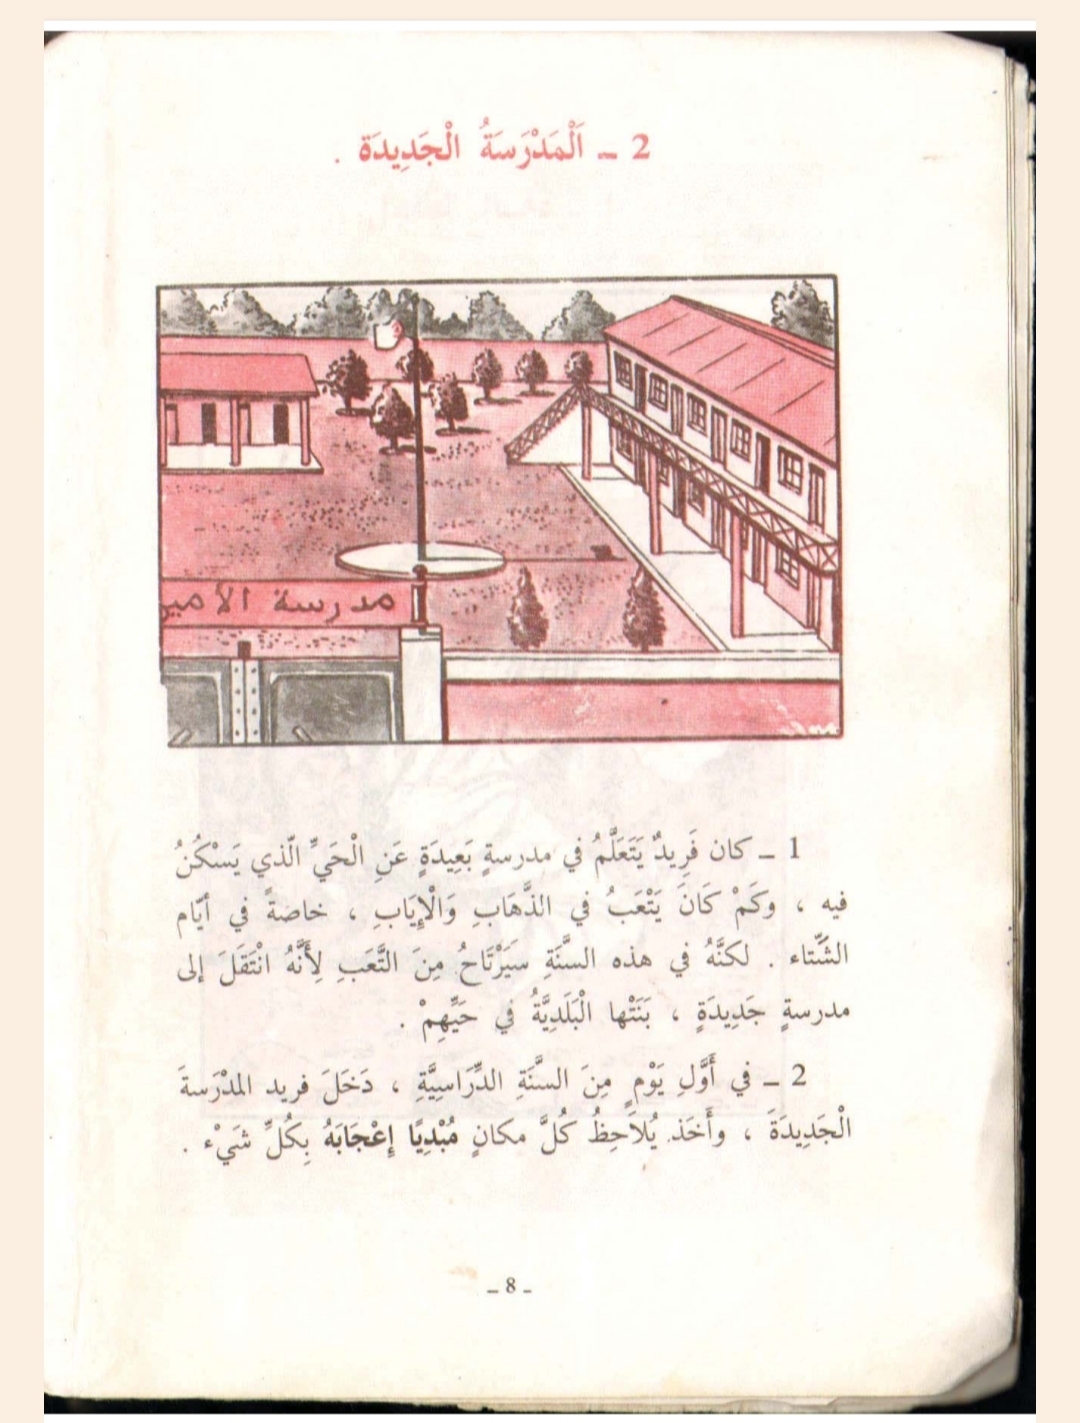 2 ـ اَلْمَدْرَسَةُ الْجَدِيدَة .
مدرسة الأمير
1 ـ كان فَرِيدٌ يَتَعَلَّمُ في مدرسةٍ بَعِيدَةٍ عَنِ الْحَيِّ الّذي يَسْكُنُ
فيه ، وكَمْ كَانَ يَتْعَبُ في الذَّهَابِ وَالْإِيَابِ ، خاصةً في أيّام
الشّتاء . لكنَّهُ في هذه السَّنَةِ سَيَرْتَاحُ مِنَ التَّعَبِ لِأَنَّهُ انْتَقَلَ إلى
مدرسةٍ جَدِيدَةٍ ، بَنَتْها الْبَلَدِيَّةُ في حَيِّهِمْ .
2 ـ في أَوَّلِ يَوْمٍ مِنَ السَّنَةِ الدِّرَاسِيَّةِ ، دَخَلَ فريد المدْرَسةَ
الْجَدِيدَةَ ، وأَخَذ يُلاَحِظُ كُلَّ مكانٍ مُبْدِيًا إِعْجَابَهُ بِكُلِّ شَيْء .
ـ 8 ـ